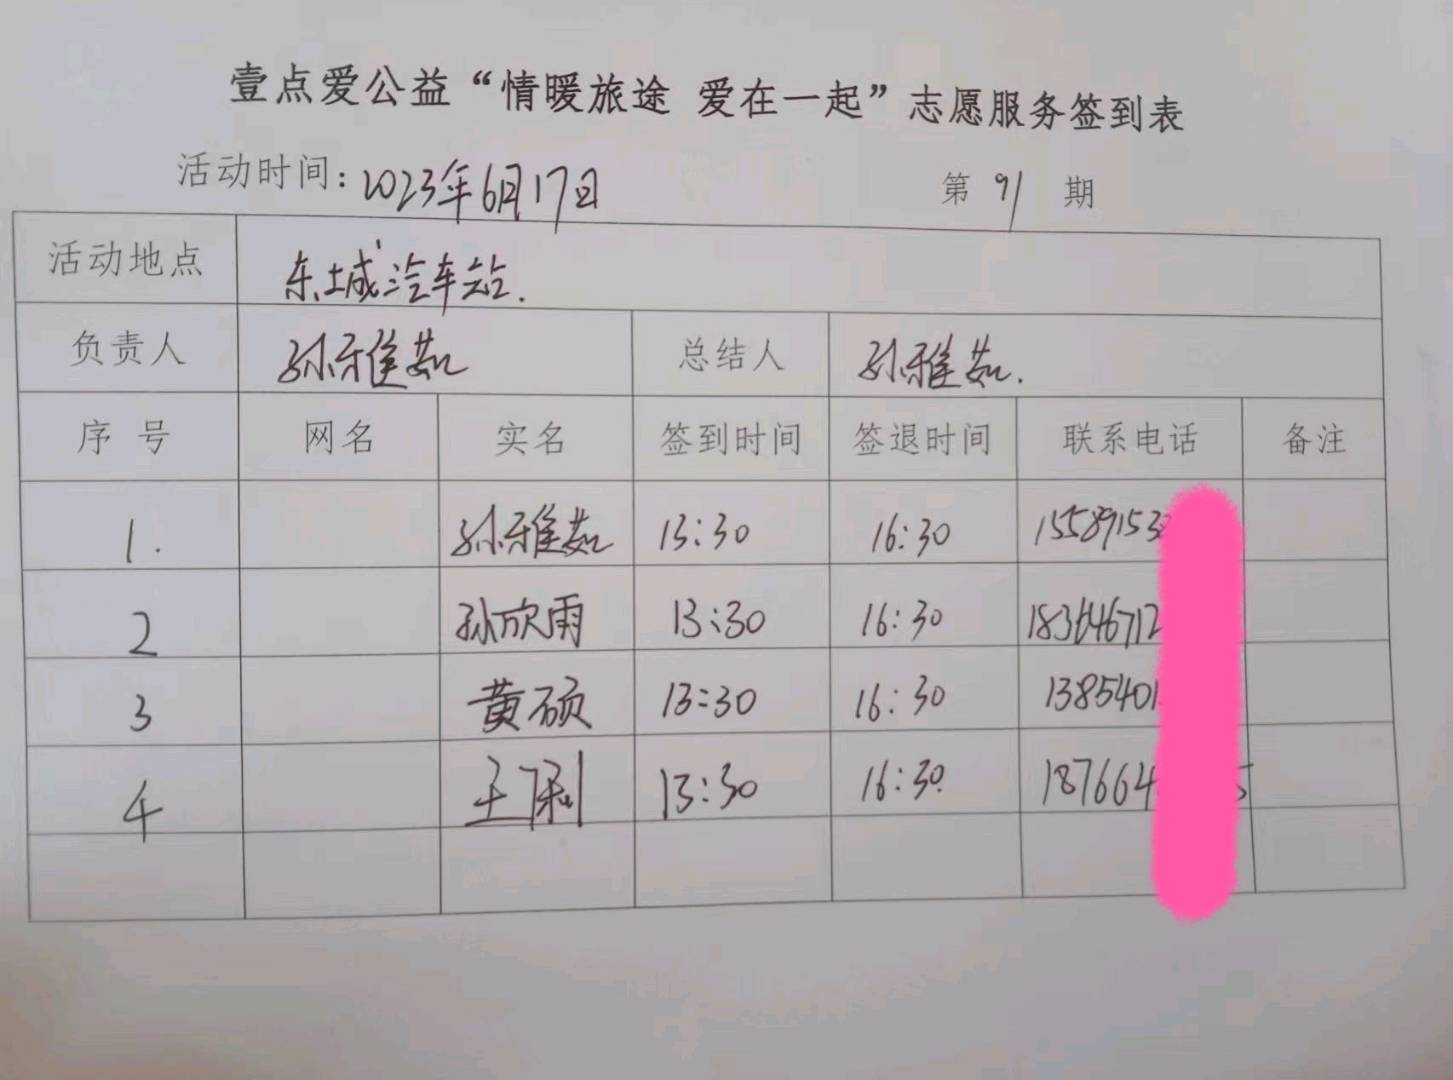 壹点爱公益“情暖旅途 爱在一起”志愿服务签到表
活动时间: 2023年6月17日 第 91 期
活动地点 东城汽车站.
负责人 孙雅茹 总结人 孙雅茹.
序 号 网名 实名 签到时间 签退时间 联系电话 备注
1. 孙雅茹 13:30 16:30 15589153
2 孙欣雨 13:30 16:30 183646712
3 黄硕 13:30 16:30 1385401
4 13:30 16:30 187664 5